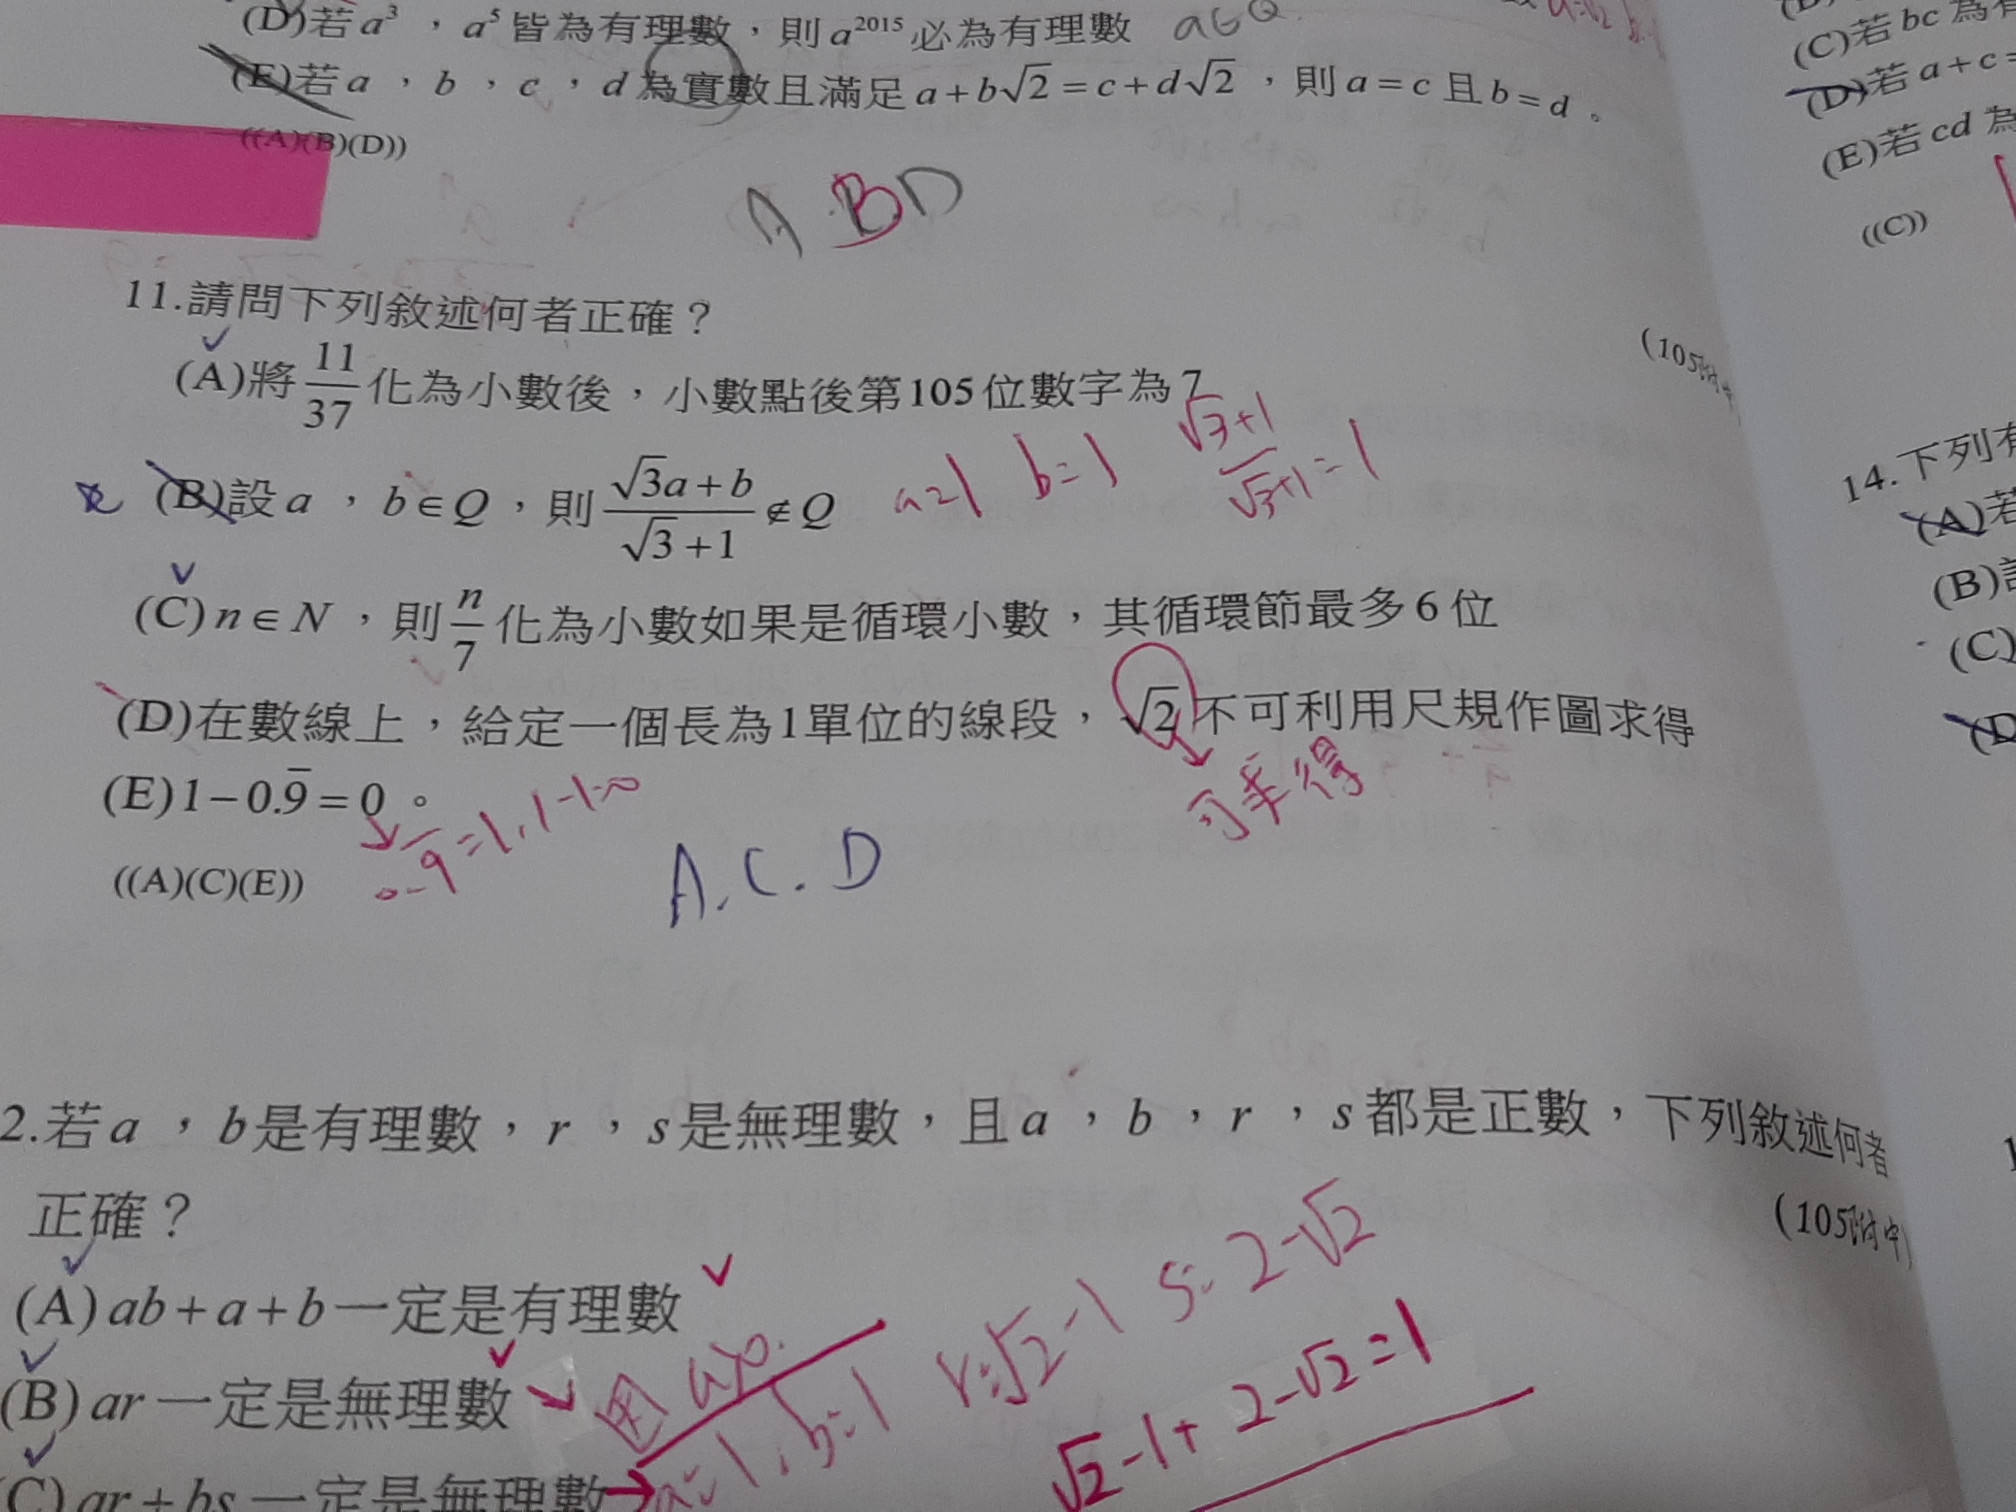 (D)若a³，a⁵皆為有理數，則a²⁰¹⁵必為有理數 a∈Q
(E)若a，b，c，d為實數且滿足a+b√2=c+d√2，則a=c且b=d。
((A)(B)(D))
A BD
11.請問下列敘述何者正確？
(105附中
(A)將11/37化為小數後，小數點後第105位數字為7
(B)設a，b∈Q，則(√3a+b)/(√3+1)∉Q a=1 b=1 (√3+1)/(√3+1)=1
(C)n∈N，則n/7化為小數如果是循環小數，其循環節最多6位
(D)在數線上，給定一個長為1單位的線段，√2不可利用尺規作圖求得
可求得
(E)1−0.9̅=0。
0.9̅=1,1-1=0
((A)(C)(E))
A.C.D
2.若a，b是有理數，r，s是無理數，且a，b，r，s都是正數，下列敘述何者
正確？
(105附中)
(A)ab+a+b一定是有理數
(B)ar一定是無理數
因a>0.
(C)ar+bs一定是無理數
a=1,b=1 r=√2-1 s=2-√2
√2-1+2-√2=1
(C)若bc為有
(D)若a+c=
(E)若cd為
((C))
14.下列有
(A)若
(B)
(C)